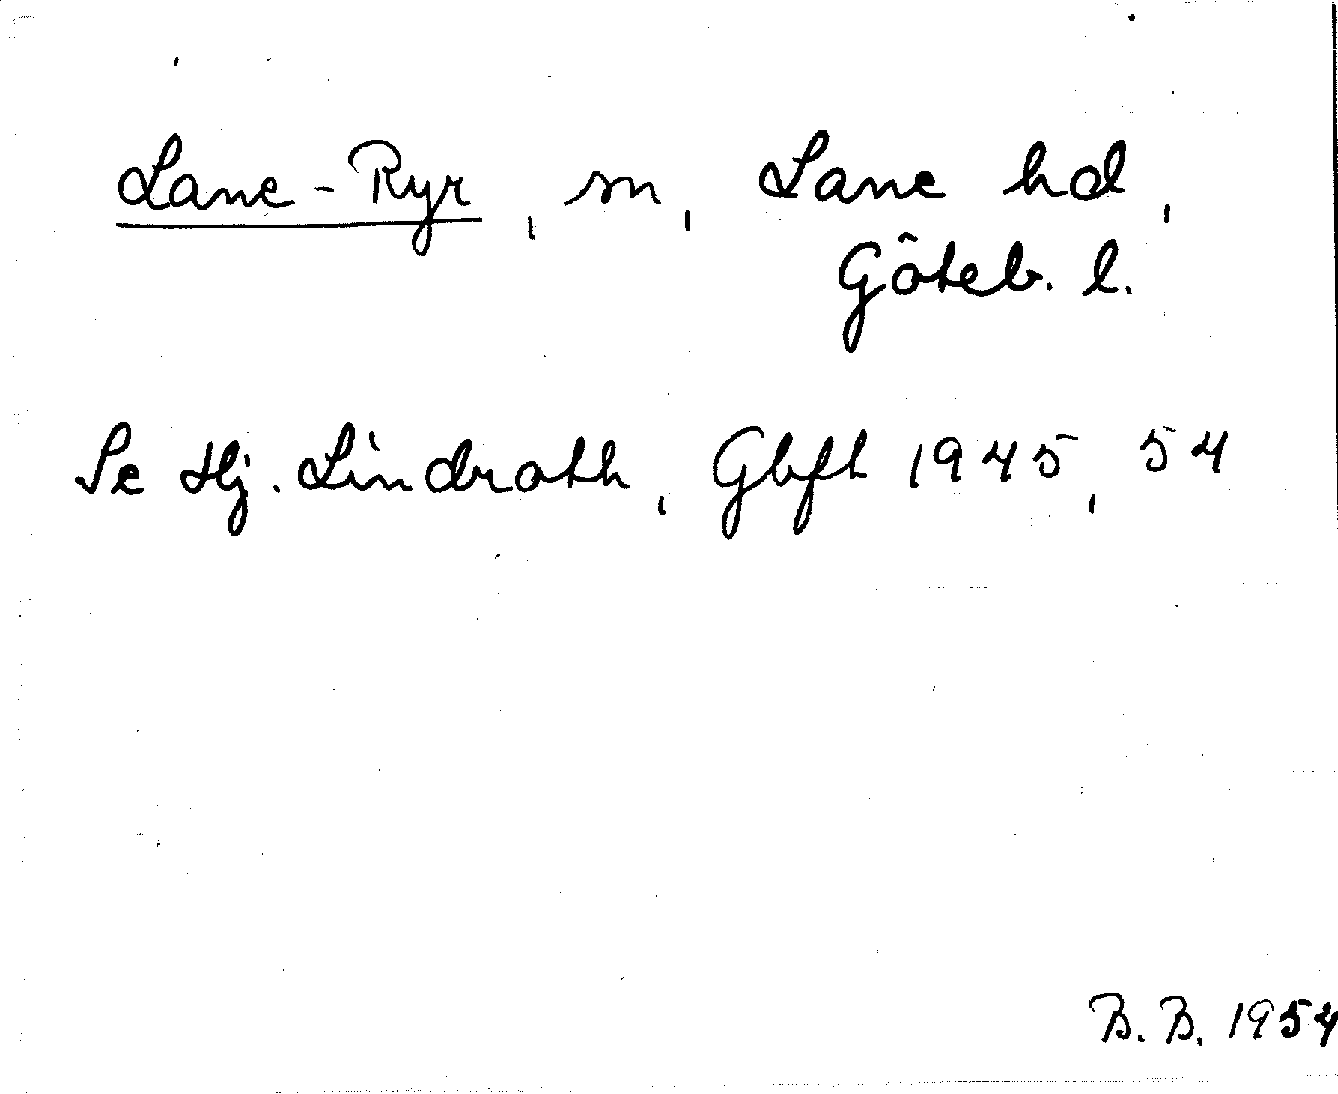 Lane-Ryr, sn, Lane hd,
Göteb. l.
Se Hj. Lindroth, Gbft 1945, 54
B.B. 1954